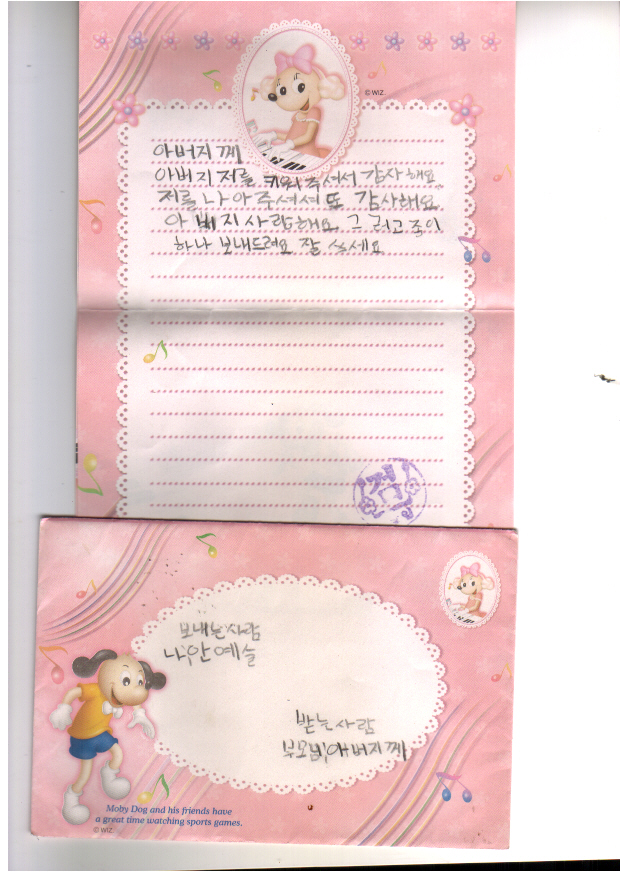 © WIZ.
아버지께
아버지 저를 키워 주셔서 감사해요
저를 나아 주셔셔 또 감사해요
아버지 사랑해요 그리고 종이
하나 보내드려요 잘 쓰세요
검
보내는사람
나,안예슬
받는사람
부모님,아버지께
Moby Dog and his friends have
a great time watching sports games.
© WIZ.